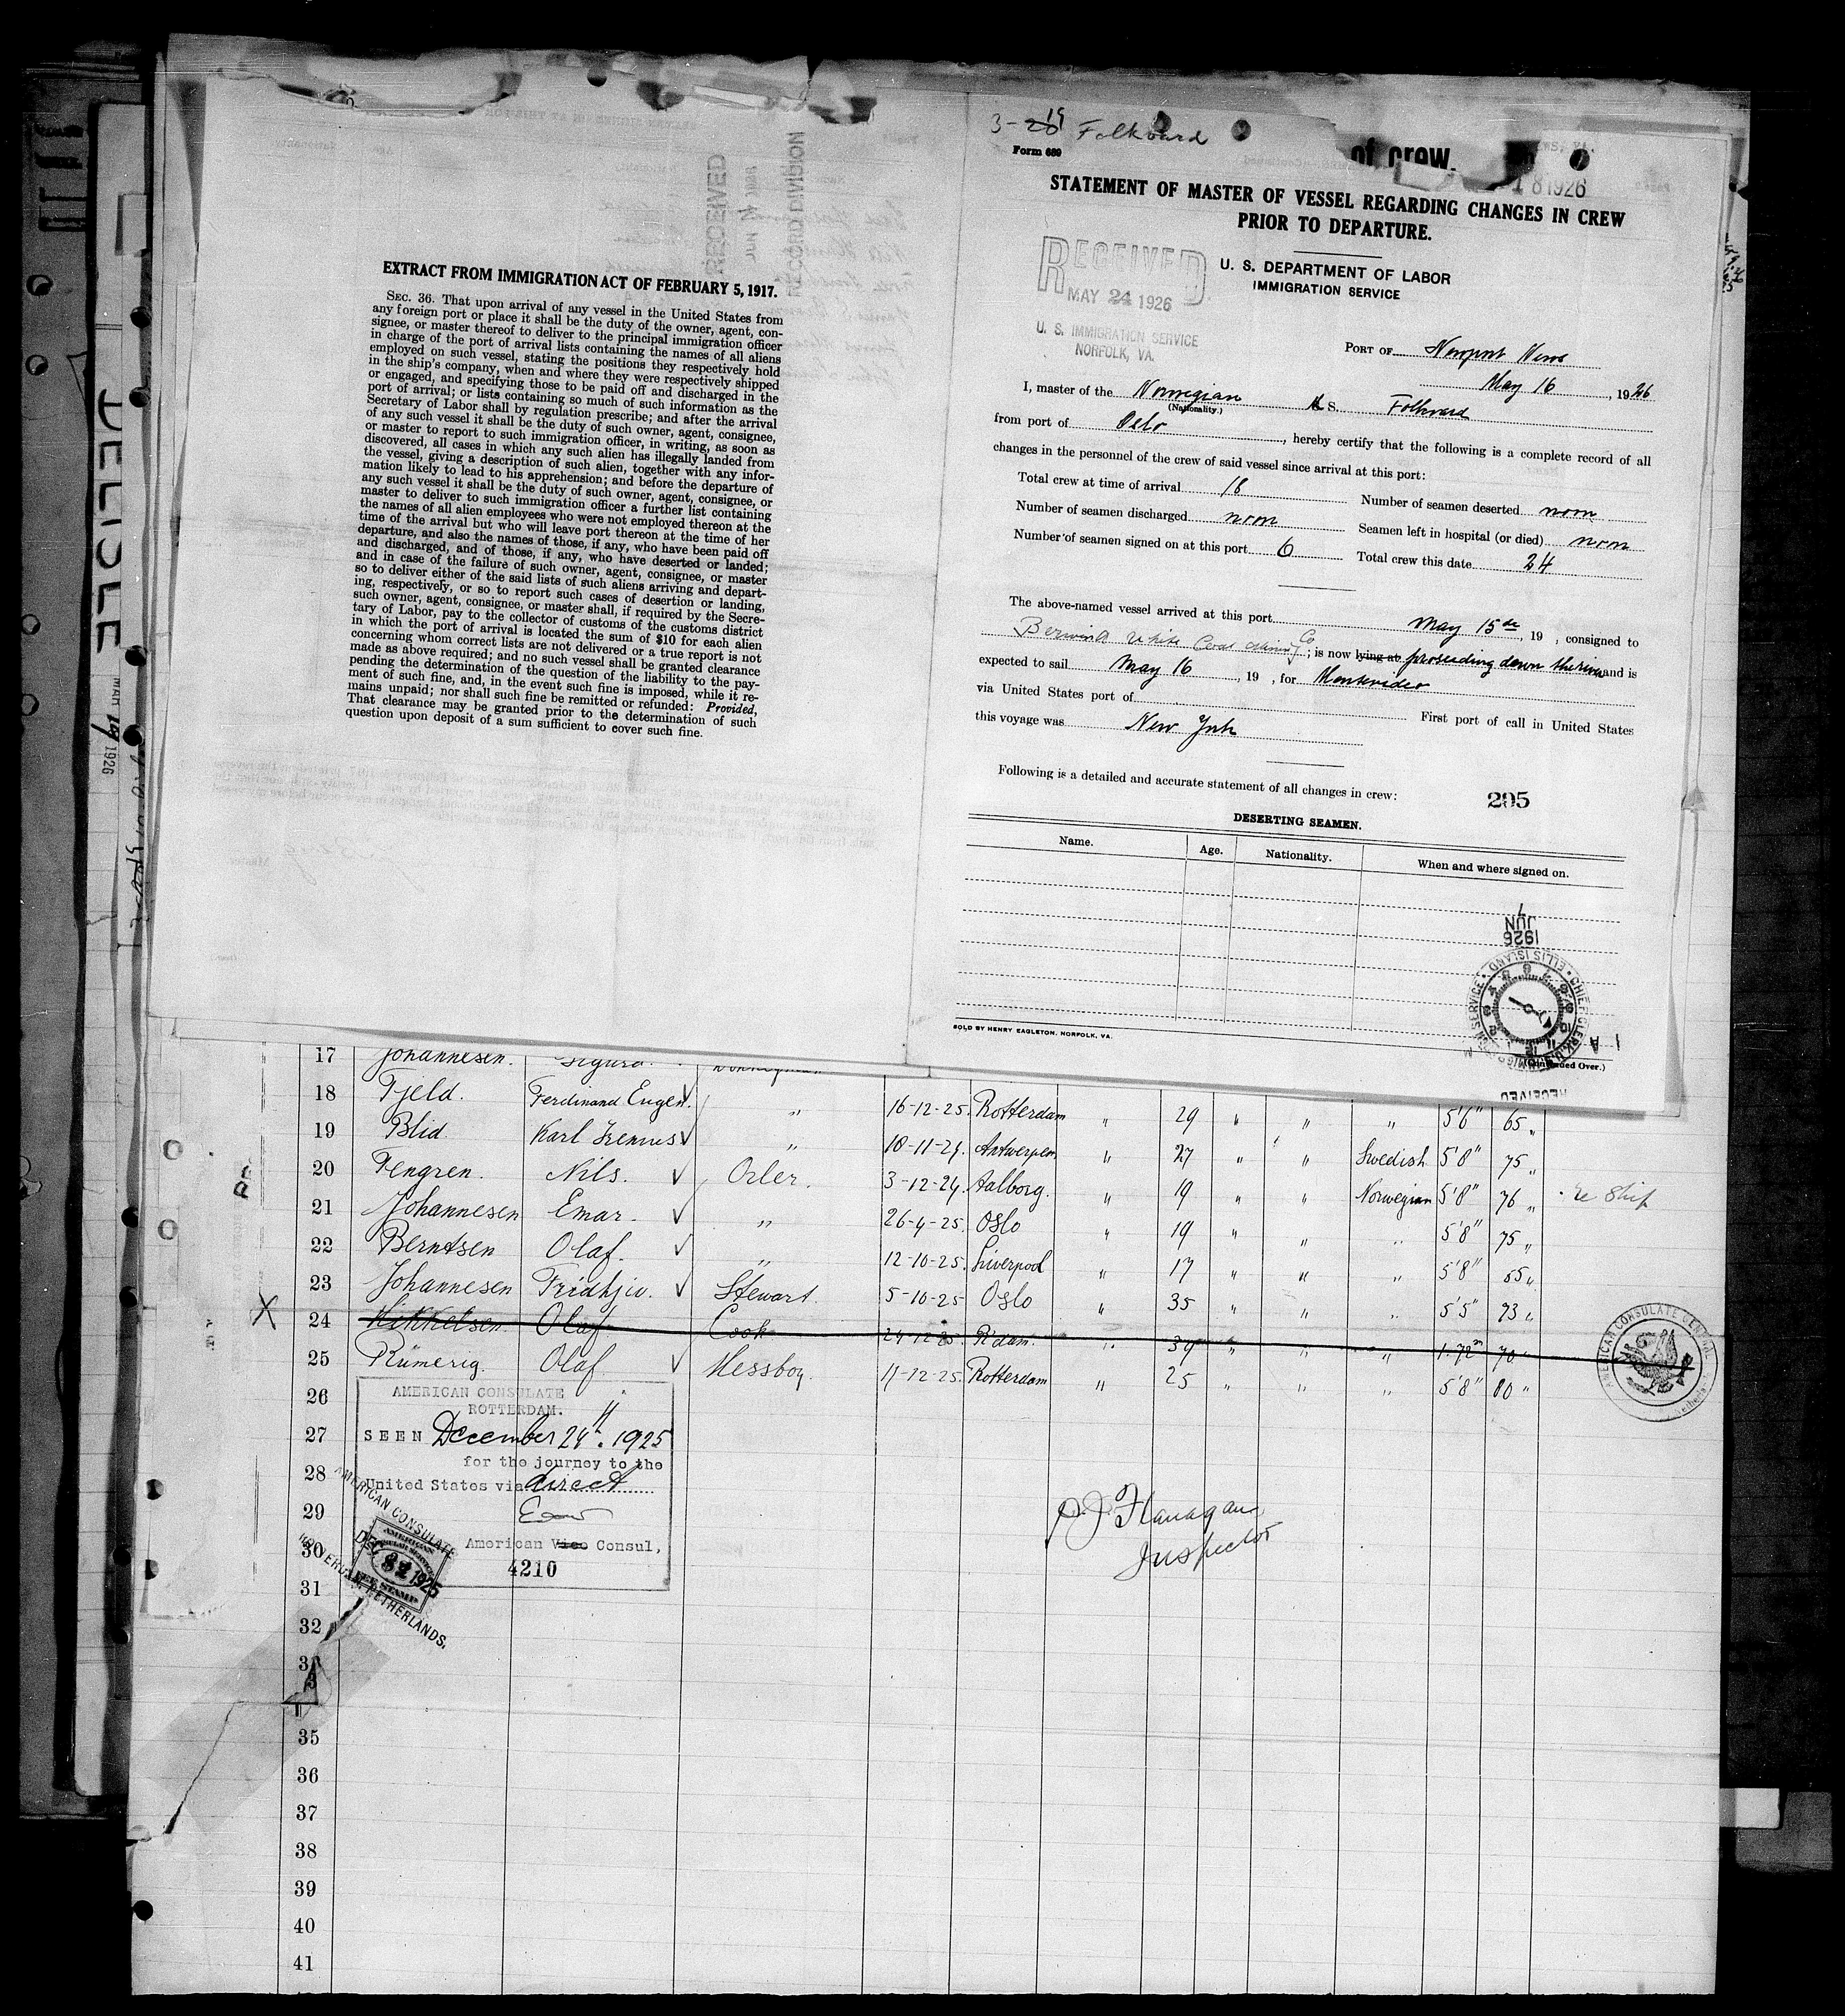 EXTRACT FROM IMMIGRATION ACT OF FEBRUARY 5, 1917.
SEC. 36. That upon arrival of any vessel in the United States from
any foreign port or place it shall be the duty of the owner, agent, con-
signee, or master thereof to deliver to the principal immigration officer
in charge of the port of arrival lists containing the names of all aliens
employed on such vessel, stating the positions they respectively hold
in the ship's company, when and where they were respectively shipped
or engaged, and specifying those to be paid off and discharged in the
port of arrival; or lists containing so much of such information as the
Secretary of Labor shall by regulation prescribe; and after the arrival
of any such vessel it shall be the duty of such owner, agent, consignee,
or master to report to such immigration officer, in writing, as soon as
discovered, all cases in which any such alien has illegally landed from
the vessel, giving a description of such alien, together with any infor-
mation likely to lead to his apprehension; and before the departure of
any such vessel it shall be the duty of such owner, agent, consignee, or
master to deliver to such immigration officer a further list containing
the names of all alien employees who were not employed thereon at the
time of the arrival but who will leave port thereon at the time of her
departure, and also the names of those, if any, who have been paid off
and discharged, and of those, if any, who have deserted or landed;
and in case of the failure of such owner, agent, consignee, or master
so to deliver either of the said lists of such aliens arriving and depart-
ing, respectively, or so to report such cases of desertion or landing,
such owner, agent, consignee, or master shall, if required by the Secre-
tary of Labor, pay to the collector of customs of the customs district
in which the port of arrival is located the sum of $10 for each alien
concerning whom correct lists are not delivered or a true report is not
made as above required; and no such vessel shall be granted clearance
pending the determination of the question of the liability to the pay-
ment of such fine, and, in the event such fine is imposed, while it re-
mains unpaid; nor shall such fine be remitted or refunded: Provided,
That clearance may be granted prior to the determination of such
question upon deposit of a sum sufficient to cover such fine.
RECEIVED
JUN
RECORD DIVISION
3-20 19 Folkvard
Form 689
of crew.
18 1926
STATEMENT OF MASTER OF VESSEL REGARDING CHANGES IN CREW
PRIOR TO DEPARTURE.
U. S. DEPARTMENT OF LABOR
IMMIGRATION SERVICE
RECEIVED
MAY 24 1926
U. S. IMMIGRATION SERVICE
NORFOLK, VA.
PORT OF Newport News
May 16, 1926
I, master of the Norwegian S. Folkvard
(Nationality.)
from port of Oslo, hereby certify that the following is a complete record of all
changes in the personnel of the crew of said vessel since arrival at this port:
Total crew at time of arrival 18 Number of seamen deserted none
Number of seamen discharged none Seamen left in hospital (or died) none
Number of seamen signed on at this port 6 Total crew this date 24
The above-named vessel arrived at this port May 15th, 19 , consigned to
Berwind White Coal Mining Co; is now lying at proseeding down the river and is
expected to sail May 16, 19 , for Montevideo
via United States port of First port of call in United States
this voyage was New York
Following is a detailed and accurate statement of all changes in crew:
295
DESERTING SEAMEN.
Name. Age. Nationality. When and where signed on.
7
JUN
1926
SOLD BY HENRY EAGLETON, NORFOLK, VA.
(Continued Over.)
RECEIVED
MAR 19 1926
17 Johannesen. Sigurd.
18 Fjeld. Ferdinand Eugen. " 16-12-25. Rotterdam " 29 " " " 5'6" 65 "
19 Blid Karl Irenius " 10-11-24. Antwerpen " 27 " " Swedish 5'8" 75 "
20 Tengren. Nils. Oiler. 3-12-24. Aalborg. " 19 " " Norwegian 5'8" 76 "
21 Johannesen Emar. " 26-4-25. Oslo " 19 " " " 5'8" 75 "
22 Berntsen Olaf. " 12-10-25. Liverpool " 17 " " " 5'8" 65 "
23 Johannesen Fridtjov. Stewart 5-10-25 Oslo " 35 " " " 5'5" 73 "
X 24 Mikkelsen. Olaf Cook 24-12-25. Rdam. " 34 " " " 1.72m 70 "
25 Rümerig. Olaf Messboy. 17-12-25. Rotterdam " 25 " " " 5'8" 80 "
26
27
28
29
30
31
32
35
36
37
38
39
40
41
AMERICAN CONSULATE
ROTTERDAM.
SEEN December 24th. 1925
for the journey to the
United States via direct
American Vice Consul,
4210
AMERICAN CONSULATE
DEC 24 1925
FEE STAMP
NETHERLANDS.
P. J. Flanagan
Inspector
AMERICAN CONSULATE GENERAL